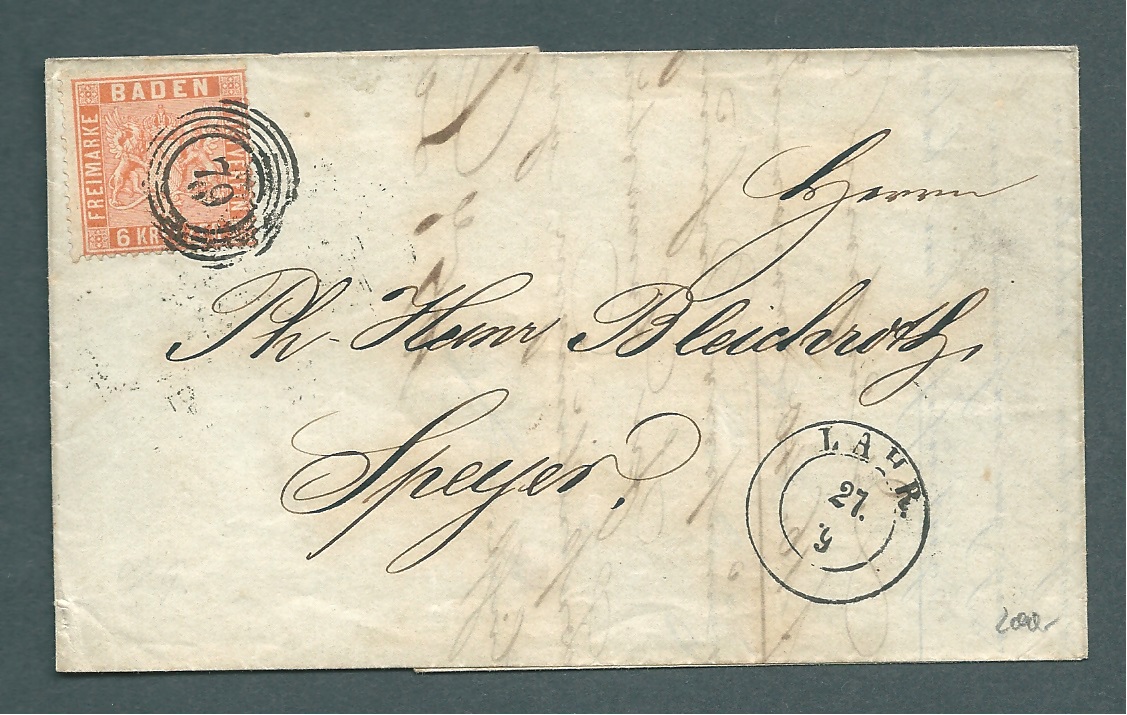 BADEN
FREIMARKE
6 KR
79
Herrn
Ph. Heinr Bleichroth,
Speyer.
LAHR.
27.
9
200.-